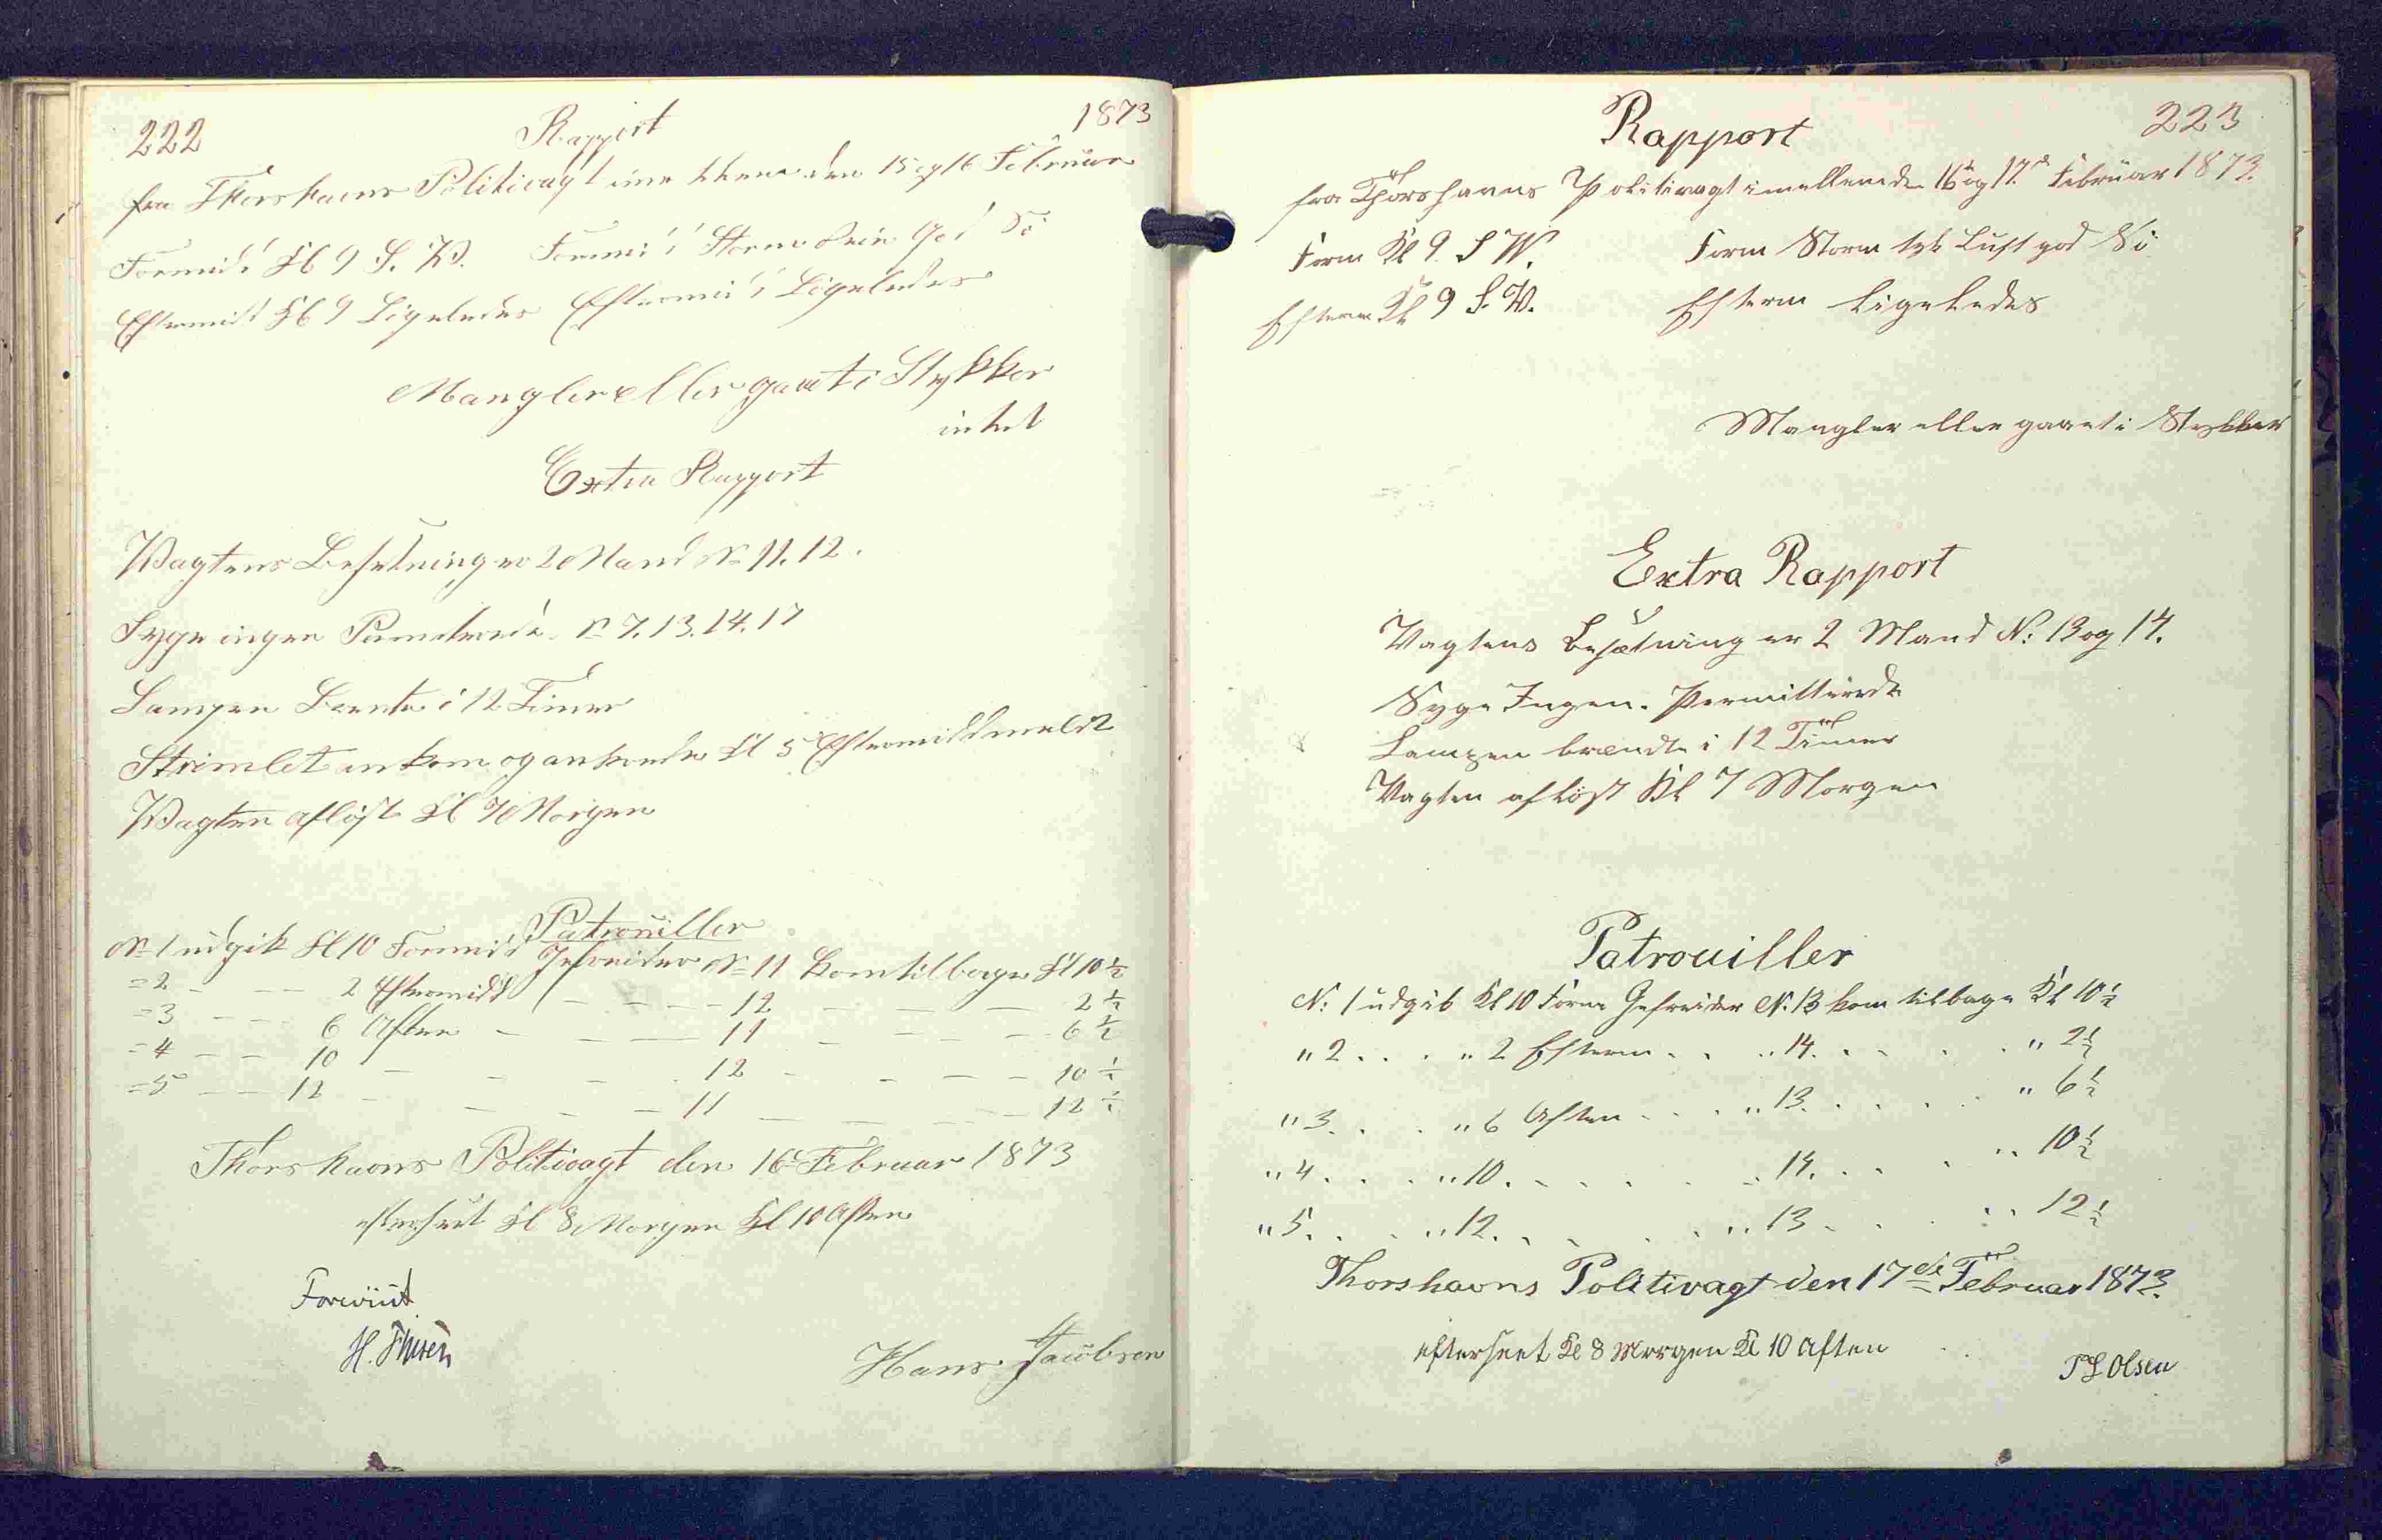 222 Rapport 1873
fra Thorshavns Politivagt imellem den 15 og 16 Februar
Formid Kl 9 S. W. Formid Storm Regn God Sö
Eftermid Kl 9 Ligeledes Eftermid Ligeledes
Mangler eller gaaet i Stykker
intet
Extra Rapport
Vagtens Besetning er 2 Mand No 11. 12.
Syge ingen Permiterede No 7. 13. 14. 17
Lampen Brente i 12 Timer
Strimlet ankom og Kl 5 Eftermidd meldt
Vagten aflöst Kl 7 Morgen
Patrouiller
No 1 udgik Kl 10 Formid Gefreider No 11 kom tilbage Kl 10 ½
= 2 — — 2 Eftermidd — — — 12 — — — 2 ½
= 3 — — 6 Aften — — — 11 — — — 6 ½
= 4 — — 10 — — — 12 — — — 10 ½
= 5 — — 12 — — — 11 — — — 12 ½
Thorshavns Politivagt den 16 Februar 1873
efterseet Kl 8 Morgen Kl 10 Aften
Forevist
H.
Hans Jacobsen
Rapport 223
fra Thorshavns Politivagt imellem den 16 og 17d Februar 1873.
Form Kl 9 S W. Form Storm tyk Luft god Sö
Efterm Kl 9 S. W. Efterm Ligeledes
Mangler eller gaaet i Stykker
Extra Rapport
Vagtens Besætning er 2 Mand N: 13 og 14.
Syge Ingen. Permitterede
Lampen brændte i 12 Timer
Vagten aflöst Kl 7 Morgen
Patrouiller
N: 1 udgik Kl 10 Form Gefreider N. 13 kom tilbage Kl 10 ½
" 2 . . . " 2 Efterm . . " 14 . . . . " 2 ½
" 3 . . . " 6 Aften . . . " 13 . . . . " 6 ½
" 4 . . . " 10 . . . . . 14 . . . " 10 ½
" 5 . . . " 12 . . . . . " 13 . . . " 12 ½
Thorshavns Politivagt den 17de Februar 1873.
efterseet Kl 8 Morgen Kl 10 Aften
Olsen